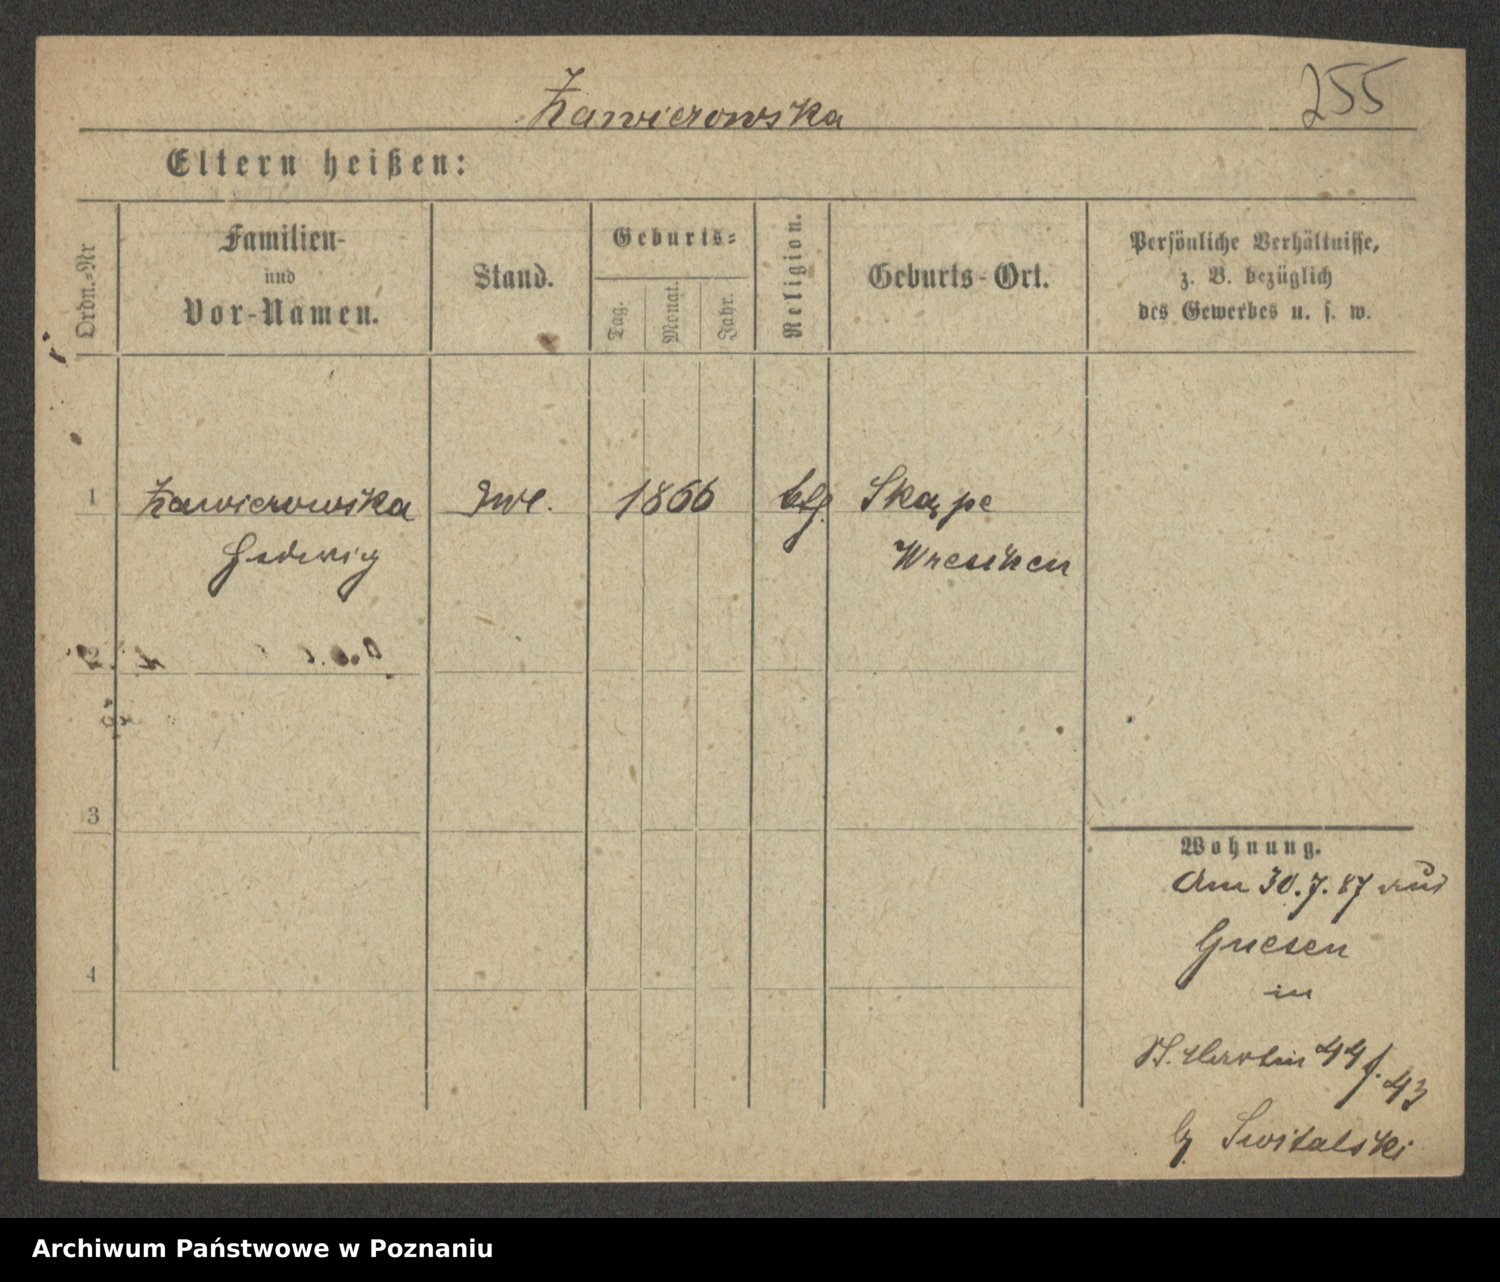 Zawierowska
255
Eltern heißen:
Ordn.-Nr
Familien-
und
Vor-Namen.
Stand.
Geburts-
Tag.
Monat.
Jahr.
Religion.
Geburts-Ort.
Persönliche Verhältnisse,
z. B. bezüglich
des Gewerbes u. s. w.
1 Zawierowska 1866 Skąpe
Hedwig Wreschen
2
3
4
Wohnung.
Am 30.7.87 aus
Gnesen
in
St. Martin 44 f. 43
b Switalski
Archiwum Państwowe w Poznaniu